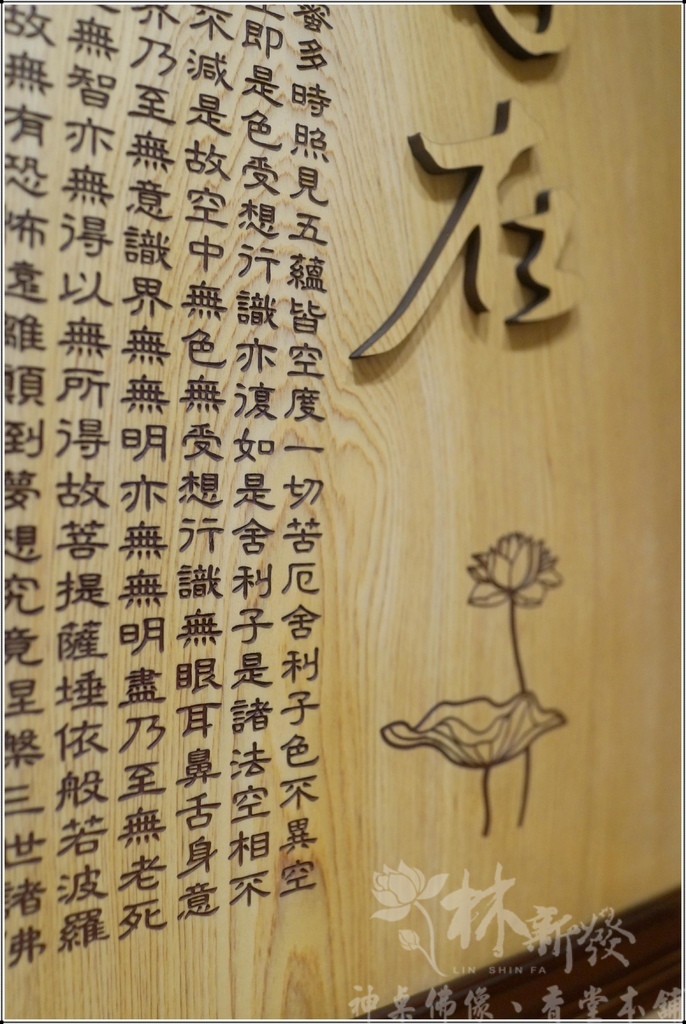 在
蜜多時照見五蘊皆空度一切苦厄舍利子色不異空
即是色受想行識亦復如是舍利子是諸法空相不
不減是故空中無色無受想行識無眼耳鼻舌身意
界乃至無意識界無無明亦無無明盡乃至無老死
無智亦無得以無所得故菩提薩埵依般若波羅
故無有恐怖遠離顛到夢想究竟涅槃三世諸佛
林新發
LIN SHIN FA
神桌佛像、香堂本舖